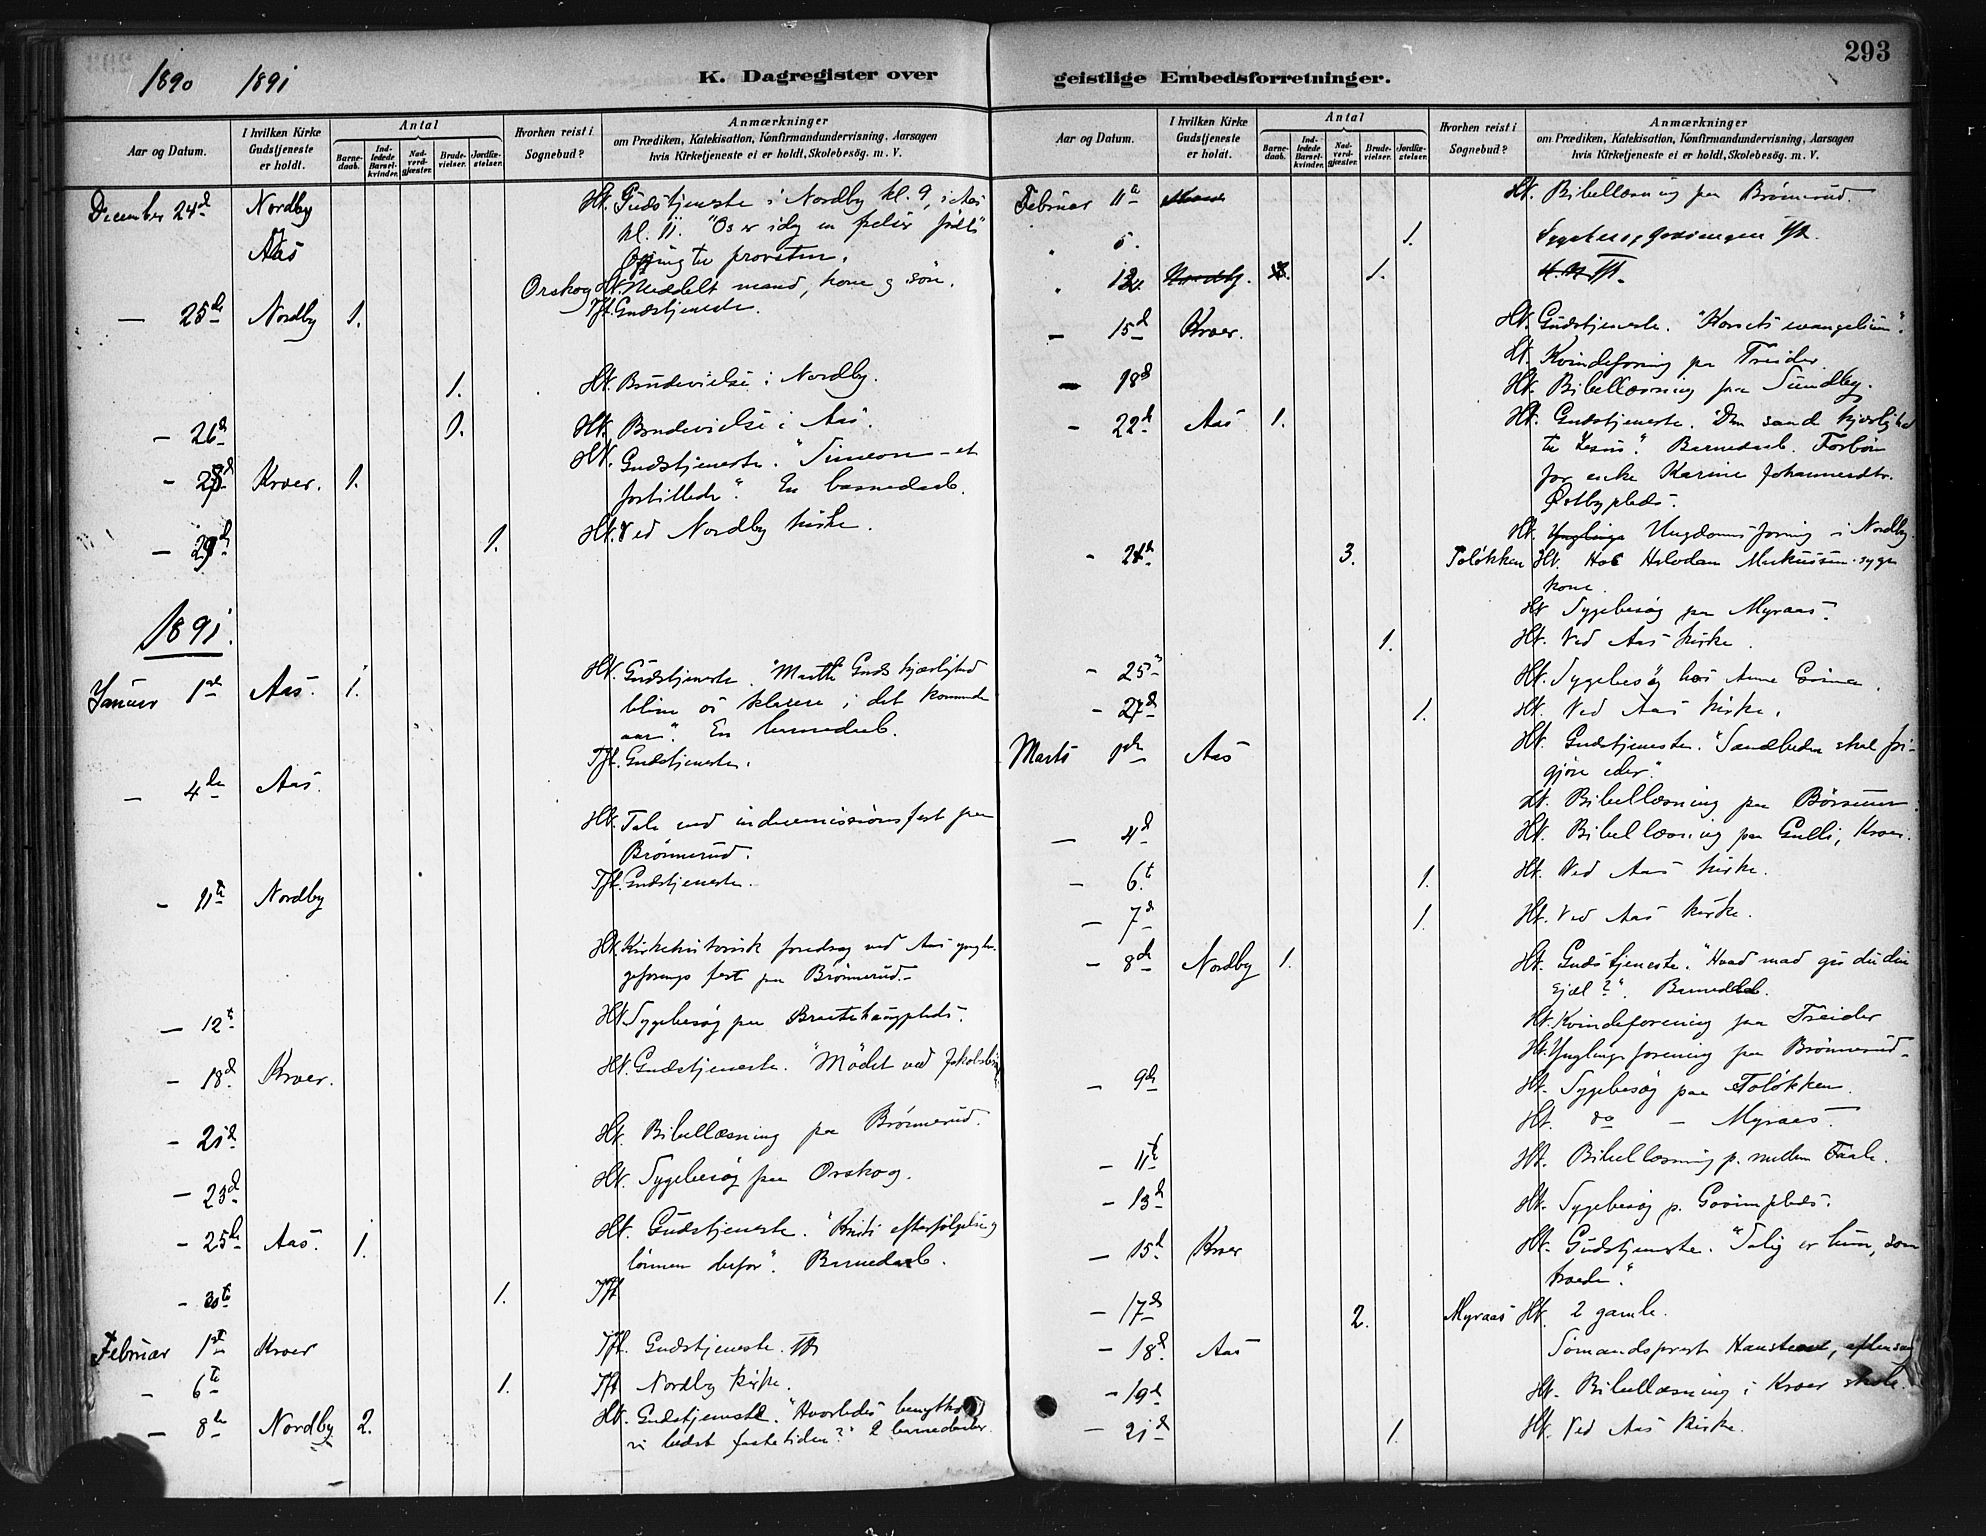 293
1890 1891
K. Dagregister over geistlige Embedsforretninger.
Aar og Datum.
I hvilken Kirke Gudstjeneste er holdt.
Antal
Barnedaab.
Indledede Barselkvinder.
Nadverdgjæster.
Brudevielser.
Jordfæstelser.
Hvorhen reist i Sognebud?
Anmærkninger
om Prædiken, Katekisation, Konfirmandundervisning, Aarsagen
hvis Kirketjeneste ei er holdt, Skolebesøg. m. V.
December 24d Nordby Ht. Gudstjeneste i Nordby kl. 9, i Aas
Aas kl. 11. "Os er idag en frelser født"
Offring til provsten.
Orskog Ht. Meddelt mand, kone og søn.
— 25d Nordby 1. Tft. Gudstjeneste.
1. Ht. Brudevielse i Nordby.
— 26d 1. Ht. Brudevielse i Aas.
— 28d Kroer. 1. Ht. Gudstjeneste. "Simeon - et
forbillede". En barnedaab.
— 29d 1. Ht. Ved Nordby kirke.
1891.
Januar 1ste Aas. 1. Ht. Gudstjeneste. "Maatte Guds kjærlighed
blive os klarere i det kommende
aar". En barnedaab.
— 4de Aas. Tft. Gudstjeneste.
Ht. Tale ved indremissionsfest paa
Brønnerud.
— 11te Nordby Tft. Gudstjeneste.
Ht. Kirkehistorisk foredrag ved Aas
fest paa Brønnerud.
— 12te Ht. Sygebesøg paa
— 18d Kroer. Ht. Gudstjeneste. "Mødet ved
— 21d Ht. Bibellæsning paa Brønnerud.
— 23d Ht. Sygebesøg paa Orskog.
— 25de Aas. 1. Ht. Gudstjeneste. "Kristi efterfølgelse og
lønnen derfor". Barnedaab.
— 30te 1. Tft
Februar 1ste Kroer Tft. Gudstjeneste.
— 6te 1. Tft Nordby kirke.
— 8de Nordby 2. Ht. Gudstjeneste. "Hvorledes benytte
vi bedst fastetiden?" 2 barnedaaber.
Aar og Datum.
I hvilken Kirke Gudstjeneste er holdt.
Antal
Barnedaab.
Indledede Barselkvinder.
Nadverdgjæster.
Brudevielser.
Jordfæstelser.
Hvorhen reist i Sognebud?
Anmærkninger
om Prædiken, Katekisation, Konfirmandundervisning, Aarsagen
hvis Kirketjeneste ei er holdt, Skolebesøg. m. V.
Februar 11te Ht. Bibellæsning paa Brønnerud.
5. 1.
13de Nordby. 1.
— 15d Kroer. Ht. Gudstjeneste. "Korsets evangelium".
Ht. Kvindeforening paa Treider
— 18d Ht. Bibellæsning paa Sundby.
— 22d Aas 1. Ht. Gudstjeneste. "Den sande kjærlighed
til Jesus". Barnedaab. Forbøn
for enke Karine Johannesdtr.
Østbyplads.
Ht. Ungdomsforening i Nordby.
— 24de 3. Toløkken Ht. Hos Halvdan Markussens syge
kone.
Ht. Sygebesøg paa Myraas.
1. Ht. Ved Aas kirke.
— 25de Ht. Sygebesøg hos Anne
— 27d 1. Ht. Ved Aas kirke.
Marts 1ste Aas Ht. Gudstjeneste. "Sandheden skal fri-
gjøre eder".
Ht. Bibellæsning paa
— 4d Ht. Bibellæsning paa Gulli, Kroer.
— 6te 1. Ht. Ved Aas kirke.
— 7d 1. Ht. Ved Aas kirke.
— 8de Nordby 1. Ht. Gudstjeneste. "Hvad mad gir du din
sjæl?". Barnedaab.
Ht. Kvindeforening paa Treider
Ht. Ynglingeforening paa Brønnerud.
— 9de Ht. Sygebesøg paa Toløkken.
Ht. do — Myraas.
— 11te Ht. Bibellæsning p. mellem
— 13d Ht. Sygebesøg p.
— 15d Kroer Ht. Gudstjeneste. "Salig er hun, som
troede".
— 17de 2. Myraas Ht. 2 gamle.
— 18d Aas Sømandsprest Hansteen, aftensang
— 19d Ht. Bibellæsning i Kroer skole.
— 21d 1. Ht. Ved Aas kirke.